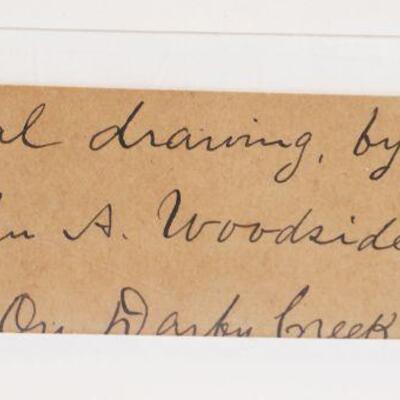 al drawing, by
hn A. Woodside
On Darby Creek